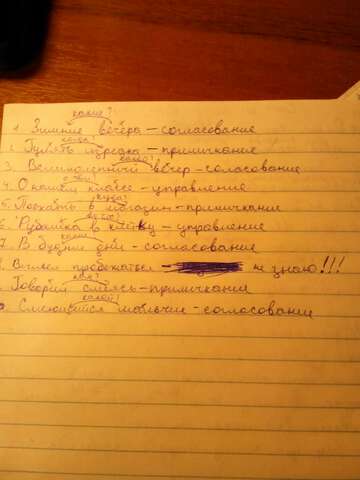 какие?
1. Зимние вечера – согласование
когда?
2. Гулять изредка – примичкание
какой?
3. Великолепный вечер – соласование
4. О нашем классе – управление
куда?
5. Поехать в магазин – примичкание
6. Рубашка в клетку – управление
какие
7. В будние дни – согласование
8. Вышел пробежаться – не знаю!!!
как?
9. Говорил смеясь – примичкание
какой?
Смеющийся мальчик – согласование